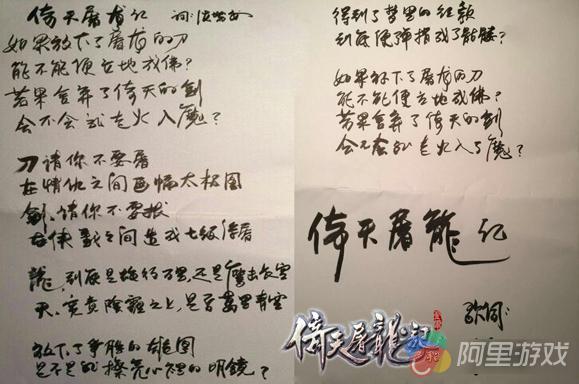 倚天屠龙记 词:
如果放下了屠龙的刀
能不能便立地成佛?
若果舍弃了倚天的剑
会不会就走火入魔?
刀,请你不要屠
在情仇之间画幅太极图
剑,请你不要拔
在侠 之间造成七级浮屠
龙,到底是 万里,还是鹰击长空
天,究竟阴霾之上,是否万里青空
放下了争胜的雄图
是不是能擦亮心里的明镜?
得到了梦里的红颜
到底便弹指成了骷髅?
如果放下了屠龙的刀
能不能便立地成佛?
若果舍弃了倚天的剑
会不会就走火入了魔?
倚天屠龍记
歌词
倚天屠龍记
阿里游戏